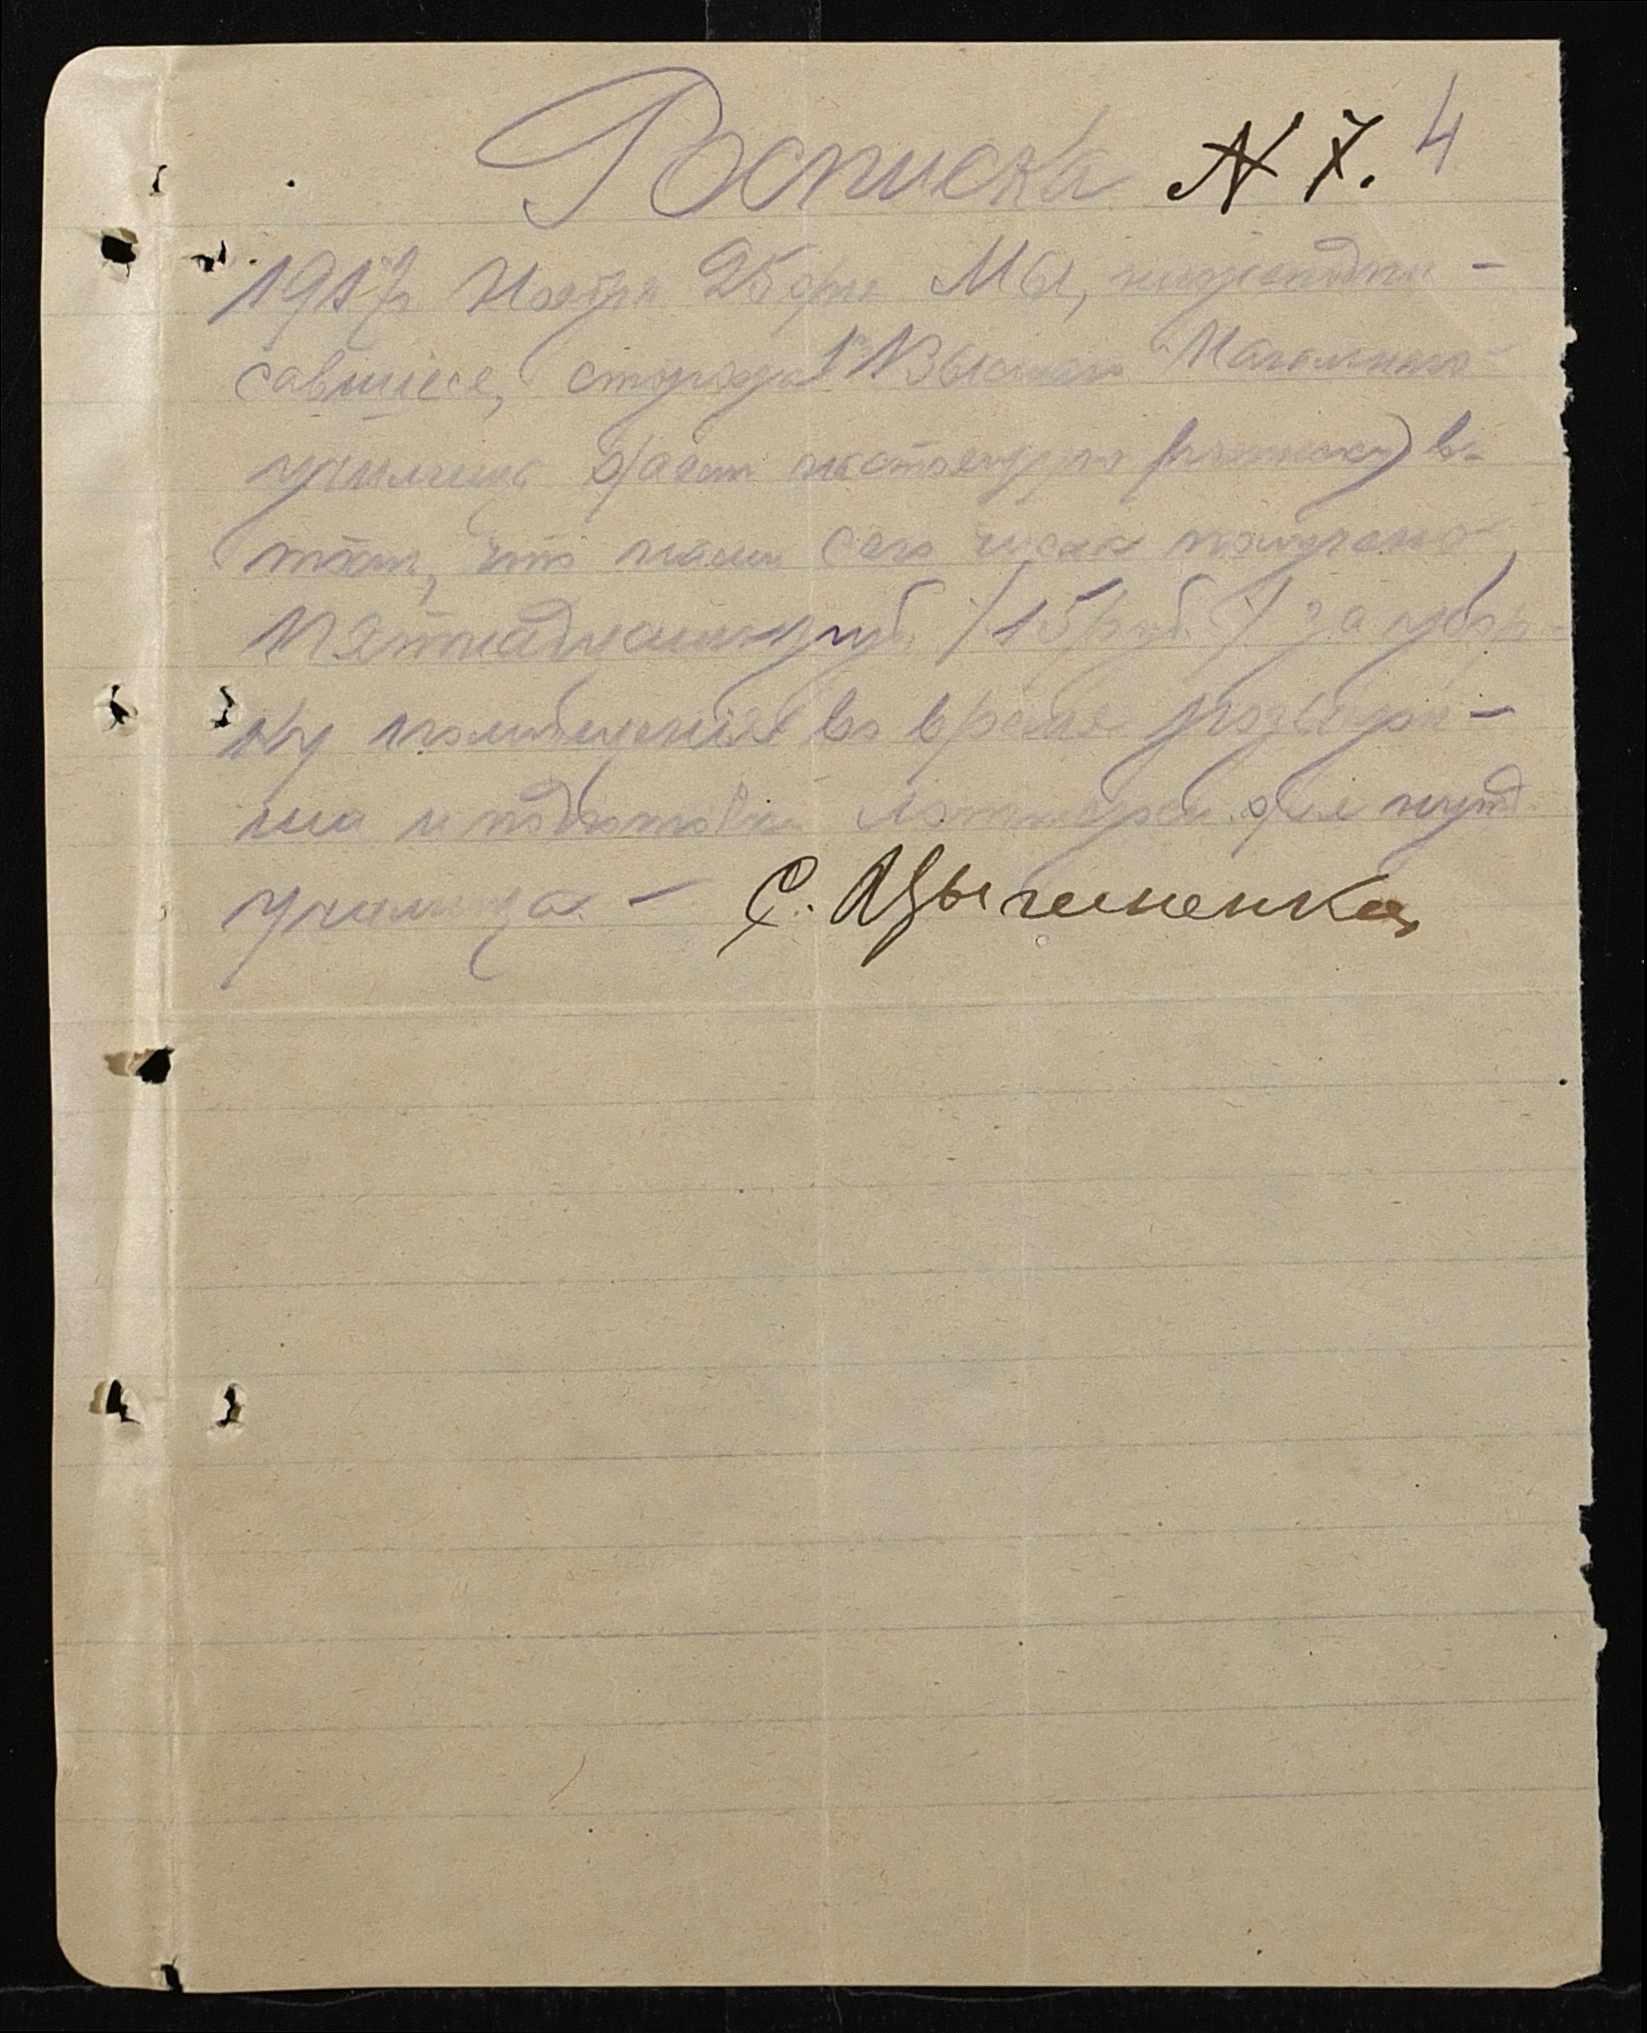 Росписка N 7. 4
1917 г Ноября 25 дня Мы, нижеподпи-
савшиеся, сторожа 1го Высшаго Начальнаго
училища даем настоящую росписку в
том, что нами сего числа получено
Пятнадцать руб. /15 руб./ за убор-
ку помещения во время
и подготовки лоттереи для нужд
училища. - С. Цыгиненка